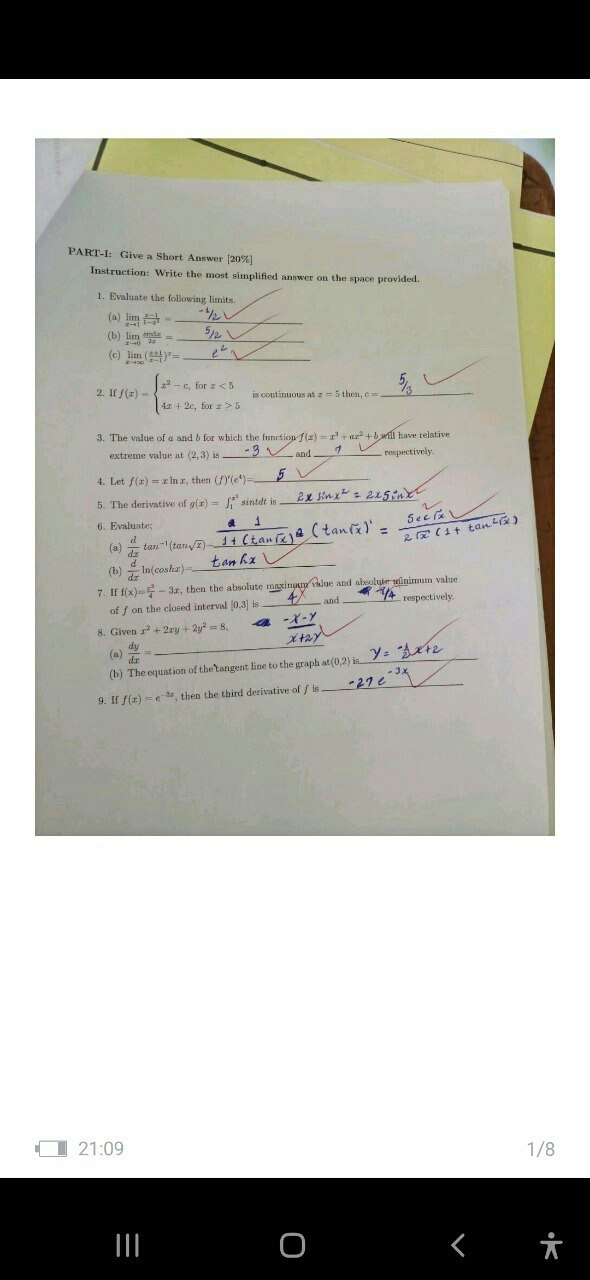 PART-I: Give a Short Answer [20%]
Instruction: Write the most simplified answer on the space provided.
1. Evaluate the following limits.
(a) lim x→1 (x-1)/(1-x²) = -1/2
(b) lim x→0 sin5x/2x = 5/2
(c) lim x→∞ ((x+1)/(x-1))ˣ = e²
2. If f(x) = { x² - c, for x < 5
4x + 2c, for x ≥ 5
is continuous at x = 5 then, c = 5/3
3. The value of a and b for which the function f(x) = x³ + ax² + b will have relative
extreme value at (2,3) is -3 and 7 respectively.
4. Let f(x) = x ln x, then (f)'(e⁴)= 5
5. The derivative of g(x) = ∫ sintdt is 2x sinx² = 2xSinx²
6. Evaluate;
(a) d/dx tan⁻¹(tan√x)= 1/(1+(tan√x)²) (tan√x)' = Sec²√x / 2√x (1+tan²√x)
(b) d/dx ln(coshx)= tanhx
7. If f(x)= - 3x, then the absolute maximum value and absolute minimum value
of f on the closed interval [0,3] is 4 and respectively.
8. Given x² + 2xy + 2y² = 8.
(a) dy/dx = -x-y / x+2y
(b) The equation of the tangent line to the graph at(0,2) is y = -1/2 x+2
9. If f(x) = e⁻³ˣ, then the third derivative of f is -27e⁻³ˣ
21:09
1/8